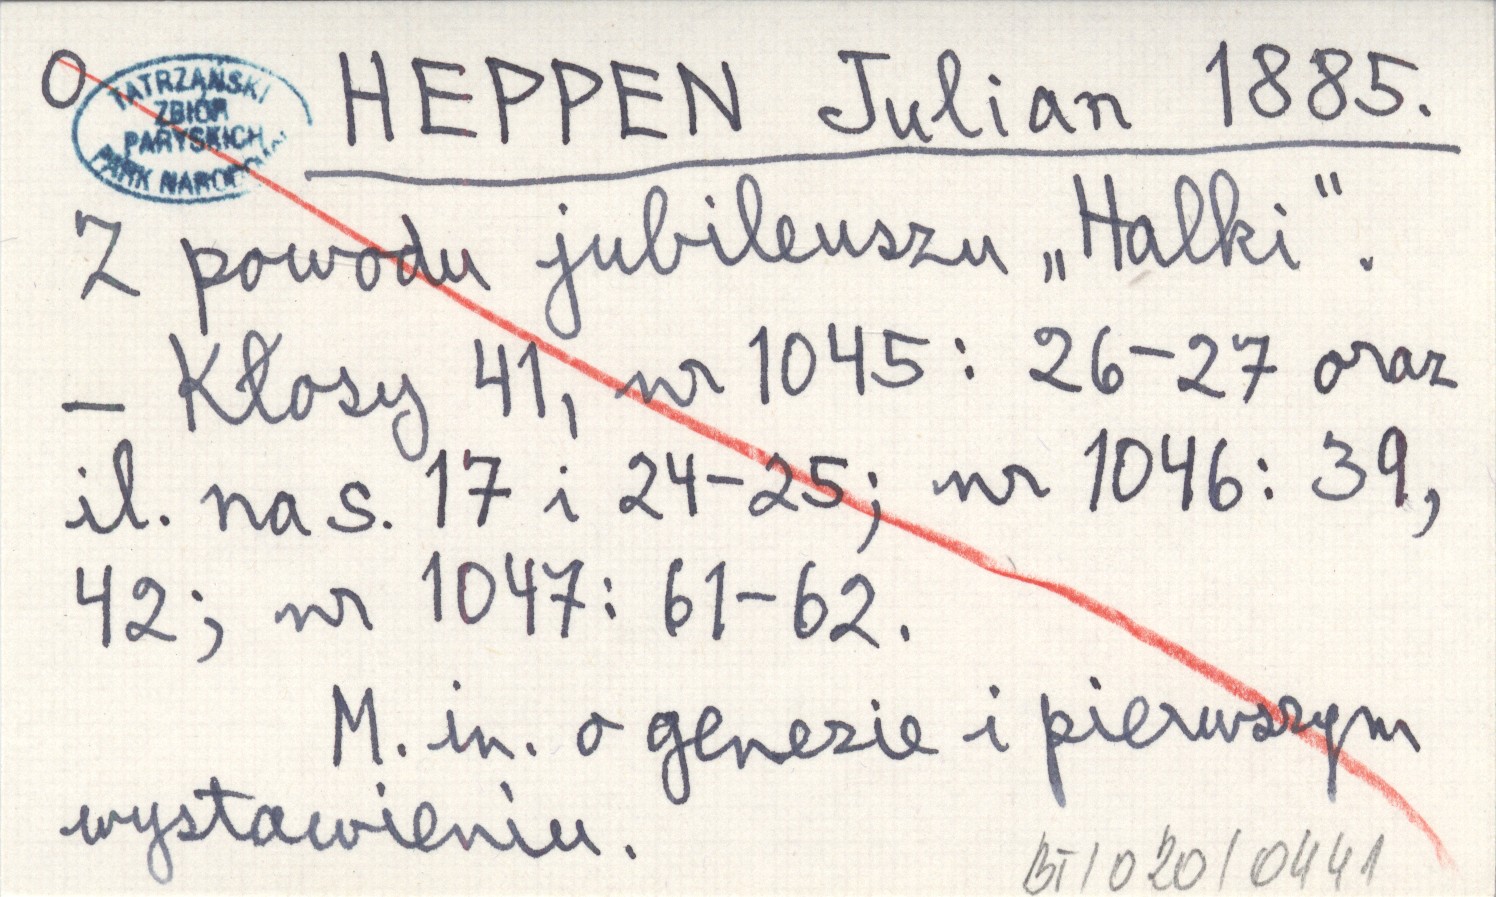 O
TATRZAŃSKI
ZBIÓR
PARYSKICH
PARK NARODOWY
HEPPEN Julian 1885.
Z powodu jubileuszu „Halki".
– Kłosy 41, nr 1045: 26–27 oraz
il. na s. 17 i 24–25; nr 1046: 39,
42; nr 1047: 61–62.
M. in. o genezie i pierwszym
wystawieniu.
BT/020/0441